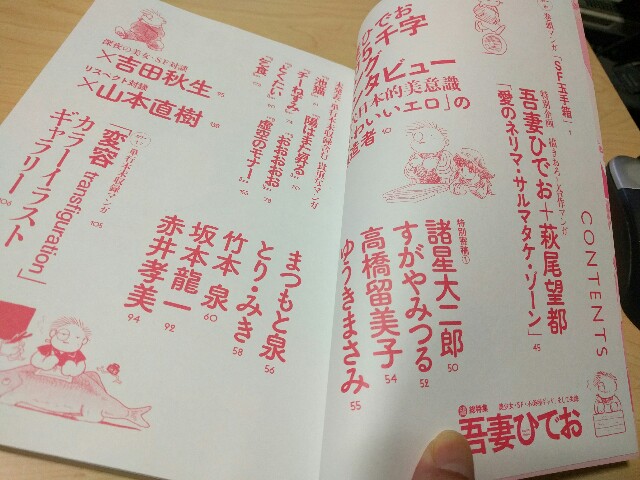 CONTENTS
巻頭マンガ「SF玉手箱」1
特別企画 描きおろし合作マンガ
吾妻ひでお+萩尾望都
「愛のネリマ・サルマタケ・ゾーン」45
ひでお
万5千字
ング
ンタビュー
日本的美意識
わいいエロ」の
造者 10
特別寄稿①
諸星大二郎 50
すがやみつる 52
高橋留美子 54
ゆうきまさみ 55
総特集
吾妻ひでお
深夜の美女・SF対談
×吉田秋生 95
リスペクト対談
×山本直樹 138
単行本未収録
マンガ
「陽はまた昇る」
「おおおおお」
「虚空のモナー」
まつもと泉 56
とり・みき 58
竹本 泉 60
坂本龍一 92
赤井孝美 94
単行本未収録マンガ
「変容 transfiguration」105
カラーイラスト
ギャラリー 106